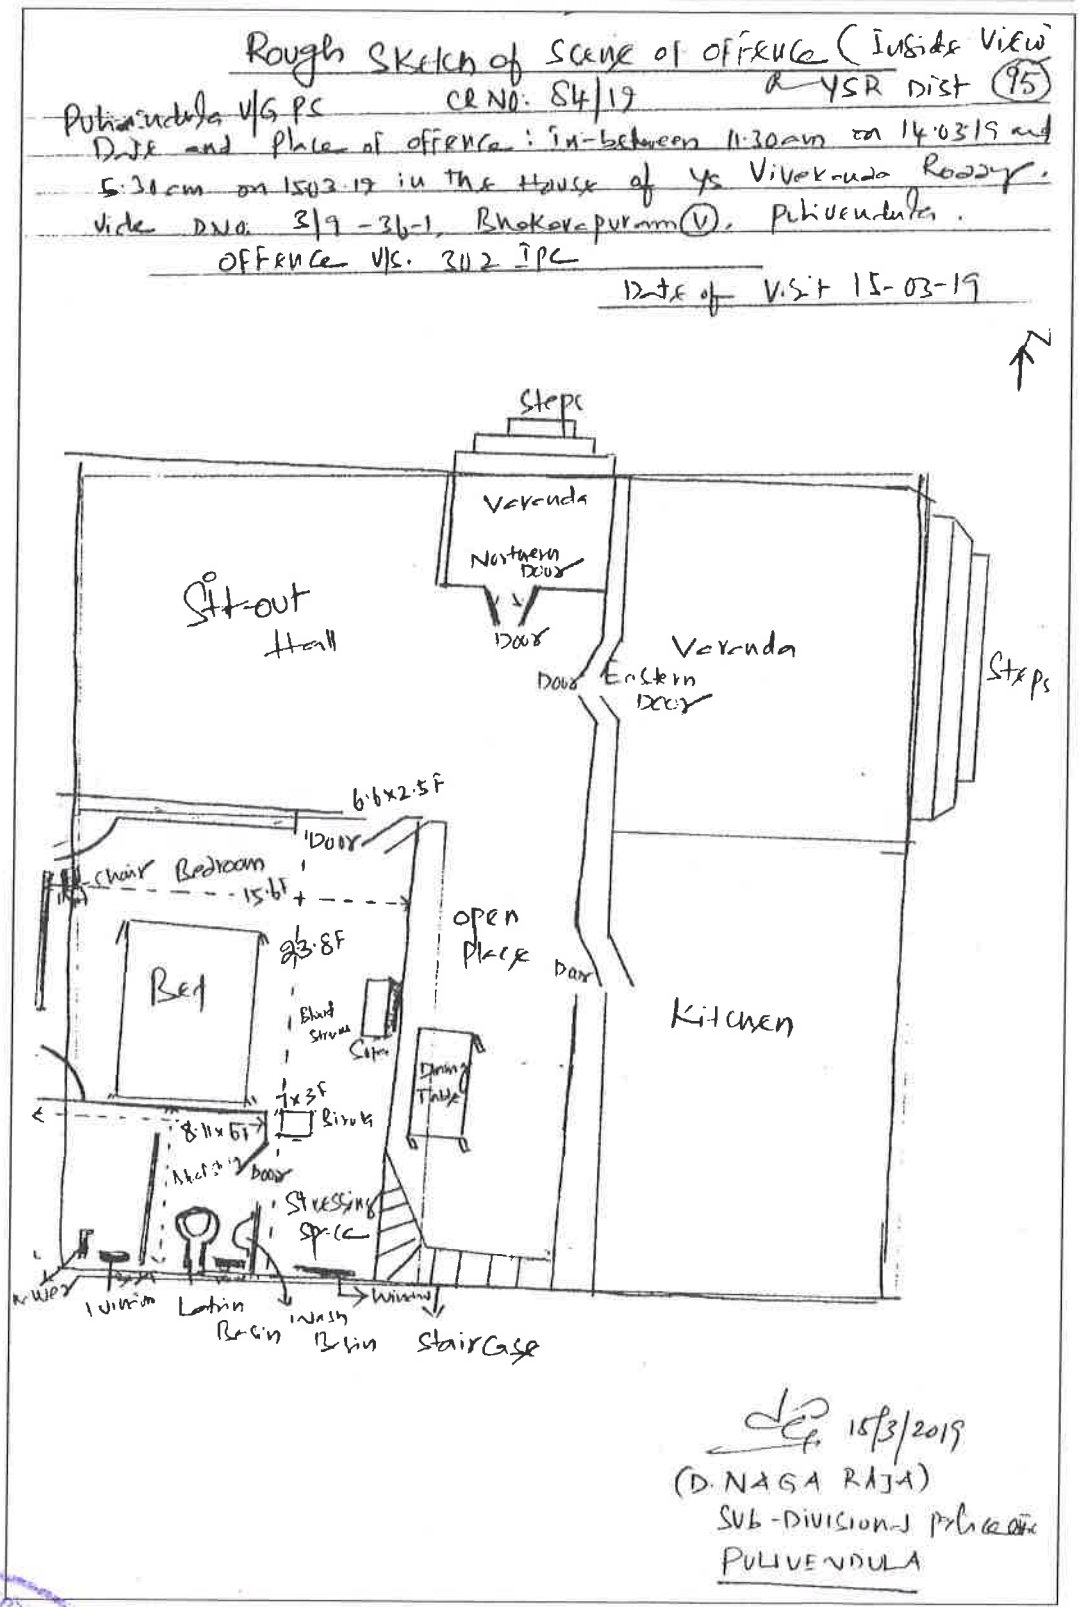 Rough Sketch of Scene of offence (Inside View
Pulivendula U/G PS CR NO: 84/19 YSR Dist 95
Date and Place of offence: in-between 11.30am on 14.0319 and
5.30am on 1503.19 in the House of YS Vivekananda Reddy.
Vide DNO. 3/9-36-1, Bhakarapuram (V), Pulivendula.
OFFENCE U/S. 302 IPC
Date of Visit 15-03-19
N
Steps
Veranda
Northern
Door
Sit-out
Hall
Door
Veranda
Door
Eastern
Door
Steps
6.6x2.5F
Door
chair Bedroom
15.6F
open
place
23.8F
Bed
Door
Kitchen
Blood
Sofa
Dining
Table
7x3F
8.11x5F
Door
Dressing
space
Window
Latrin
Basin
Wash
Basin
Staircase
15/3/2019
(D. NAGA RAJA)
Sub-Divisional Police
PULIVENDULA